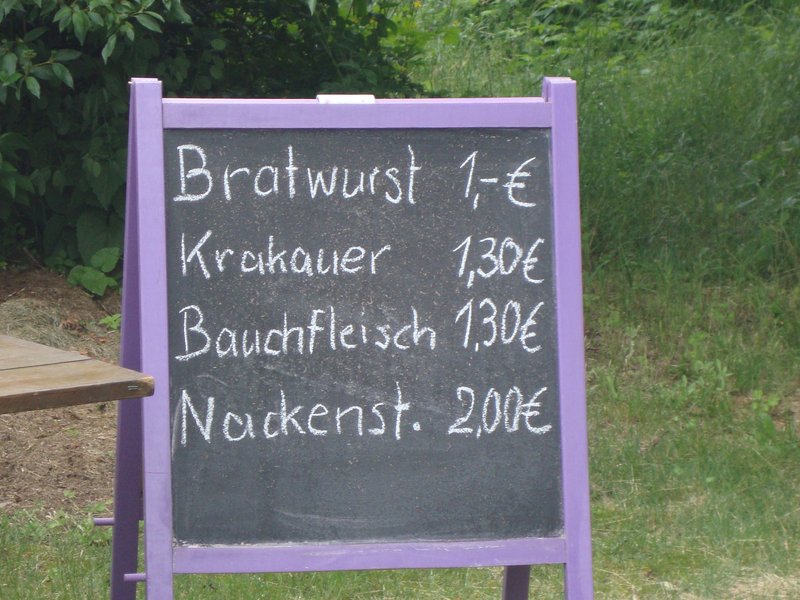 Bratwurst 1,-€
Krakauer 1,30€
Bauchfleisch 1,30€
Nackenst. 2,00€